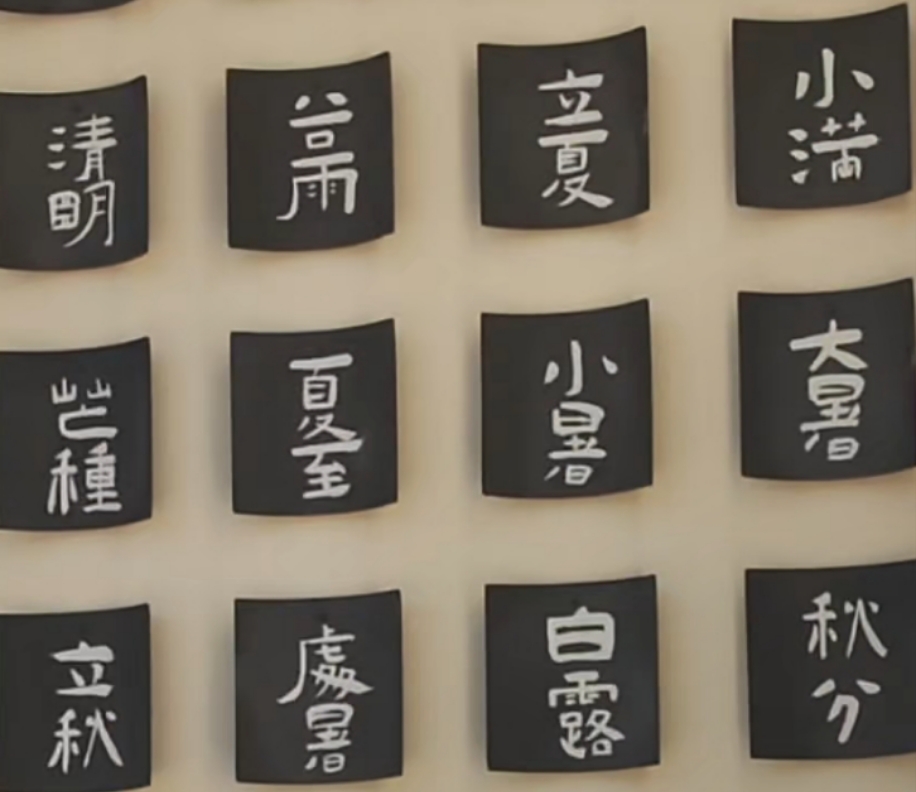 清明
谷雨
立夏
小满
芒種
夏至
小暑
大暑
立秋
處暑
白露
秋分